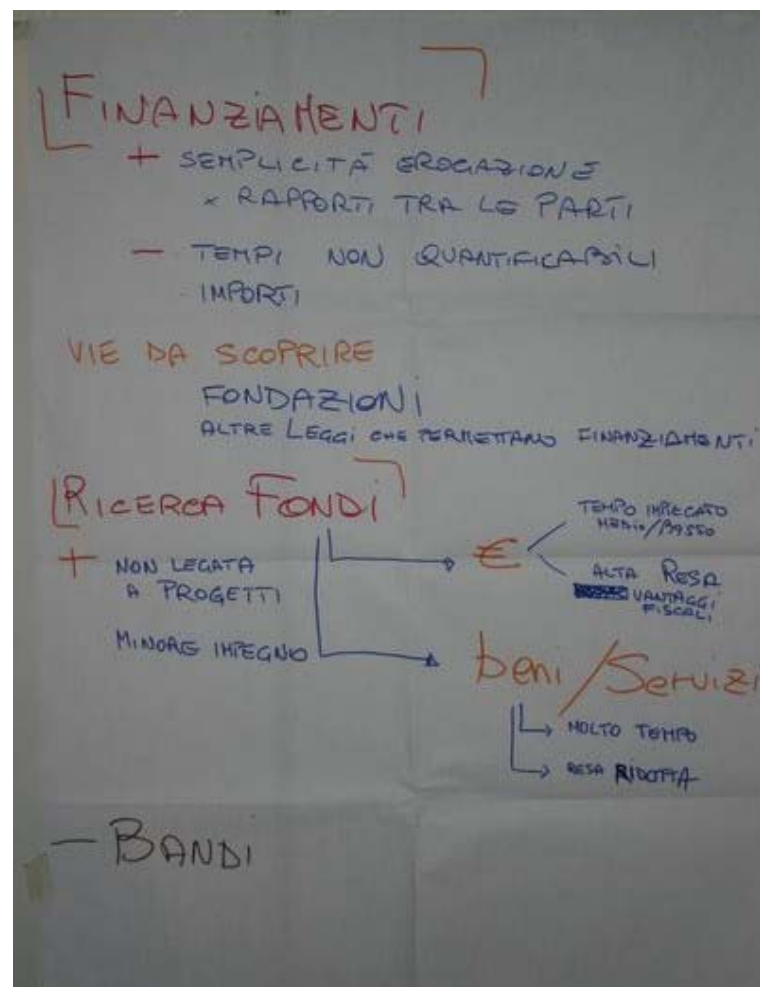 FINANZIAMENTI
+ SEMPLICITÀ EROGAZIONE
x RAPPORTI TRA LE PARTI
- TEMPI NON QUANTIFICABILI
IMPORTI
VIE DA SCOPRIRE
FONDAZIONI
ALTRE LEGGI CHE PERMETTANO FINANZIAMENTI
RICERCA FONDI
+ NON LEGATA
A PROGETTI
MINORE IMPEGNO
€
TEMPO IMPIEGATO
MEDIO/BASSO
ALTA RESA
VANTAGGI
FISCALI
beni/Servizi
MOLTO TEMPO
RESA RIDOTTA
- BANDI